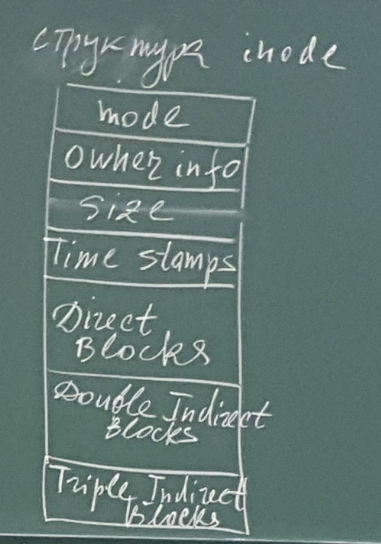 структура inode
mode
Owner info
Size
Time stamps
Direct
Blocks
Double Indirect
Blocks
Triple Indirect
Blocks